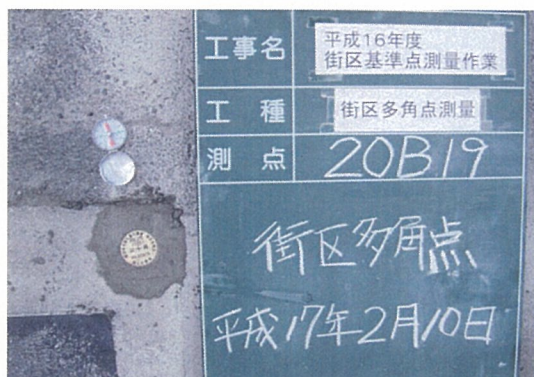 工事名
平成16年度
街区基準点測量作業
工種
街区多角点測量
測点
20B19
街区多角点
平成17年2月10日